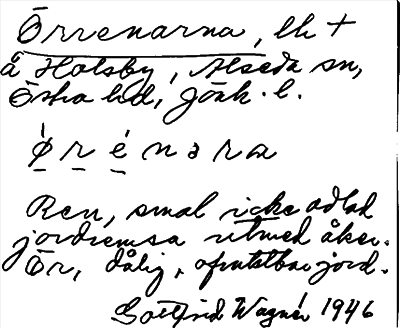 Örrenarna, lh +
å Holsby, Alseda sn,
Östra hd, Jönk. l.
ø r é n a r a
Ren, smal icke odlad
jordremsa utmed åker.
Ör, dålig, ofruktbar jord.
Gottfrid Wagnér 1946